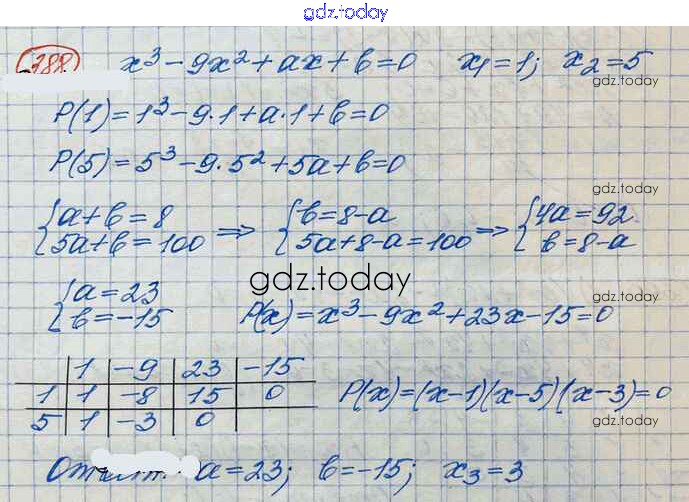 gdz.today
388 x³ - 9x² + ax + b = 0 x₁ = 1; x₂ = 5
gdz.today
P(1) = 1³ - 9·1 + a·1 + b = 0
P(5) = 5³ - 9·5² + 5a + b = 0
gdz.today
{a + b = 8 ⇒ {b = 8 - a ⇒ {4a = 92
{5a + b = 100 {5a + 8 - a = 100 {b = 8 - a
gdz.today
gdz.today
{a = 23
{b = -15 P(x) = x³ - 9x² + 23x - 15 = 0
gdz.today
| 1 | -9 | 23 | -15
1 | 1 | -8 | 15 | 0
5 | 1 | -3 | 0
P(x) = (x-1)(x-5)(x-3) = 0
gdz.today
a = 23; b = -15; x₃ = 3